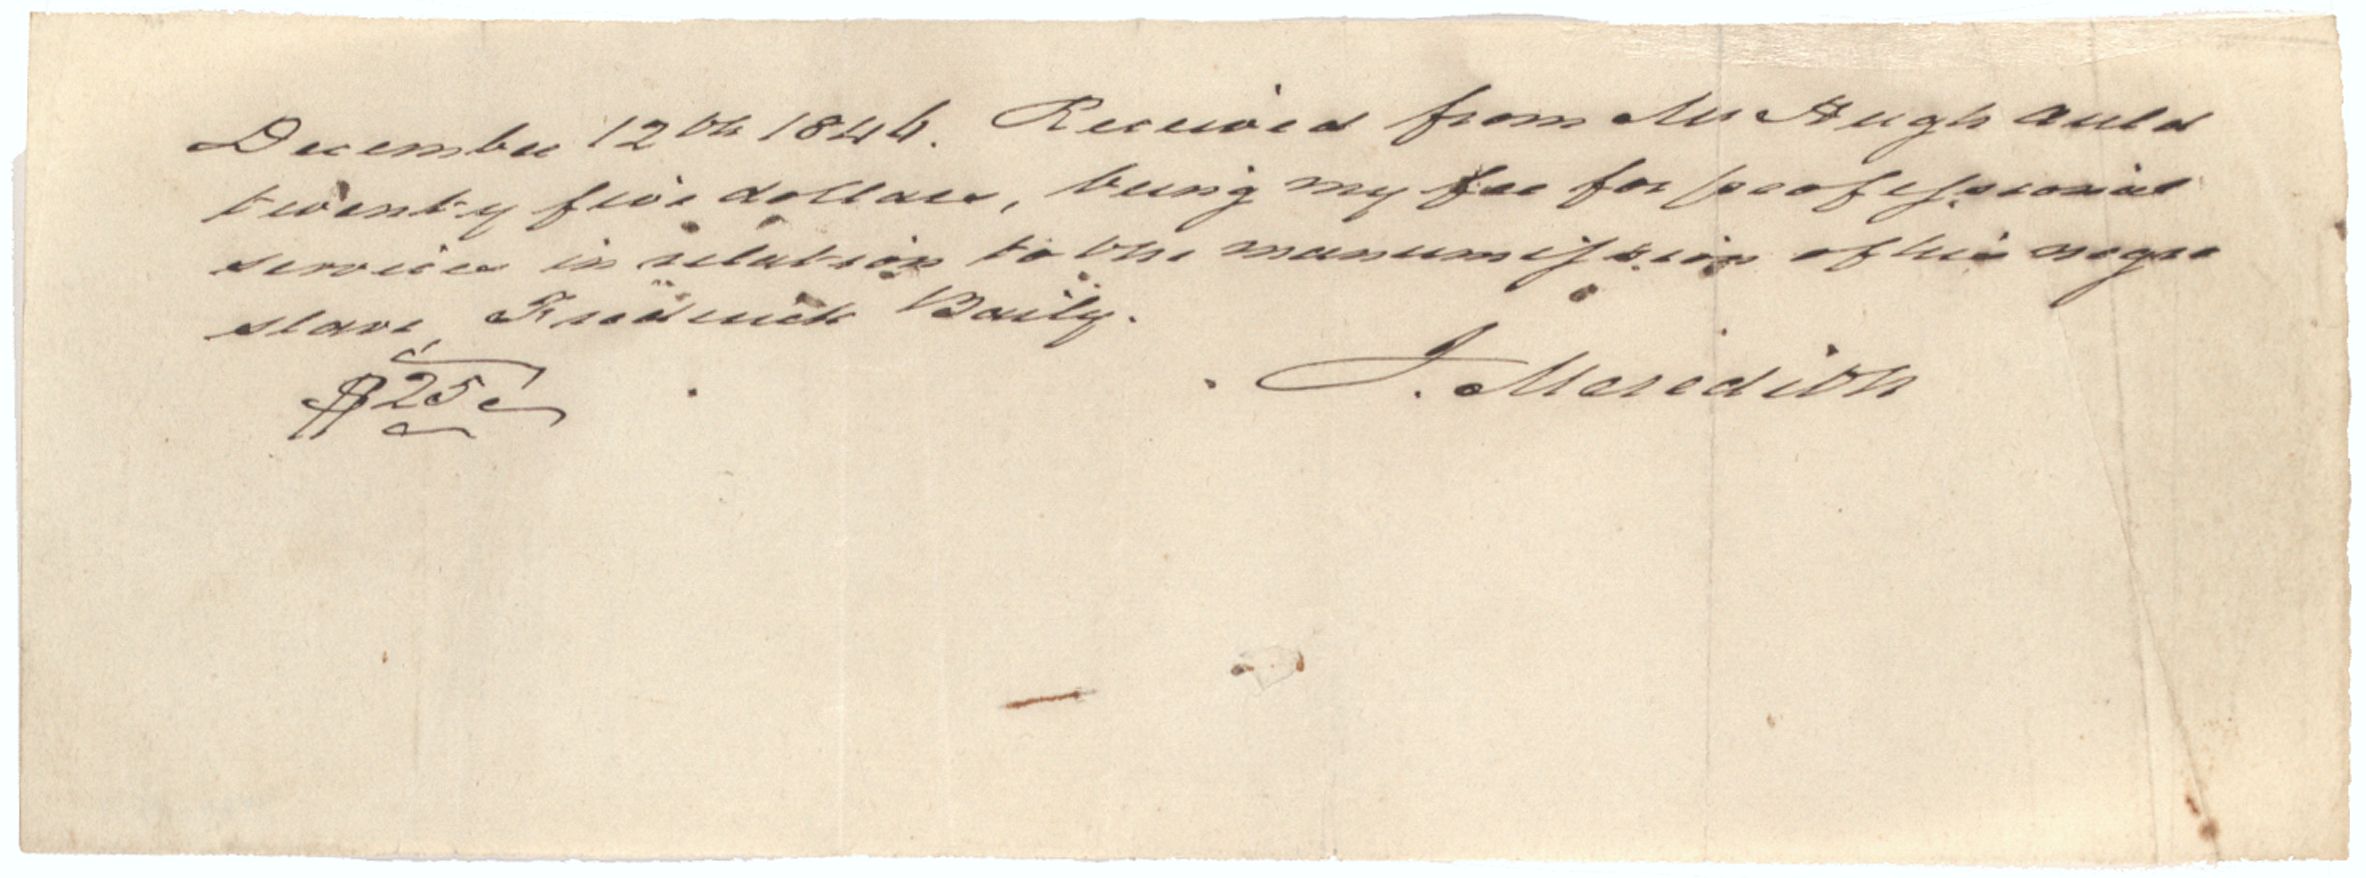 December 12th 1846. Received from Mr Hugh Auld
twenty five dollars, being my fee for professional
services in relation to the manumission of his negro
slave, Frederick Baily.
J. Meredith
$25